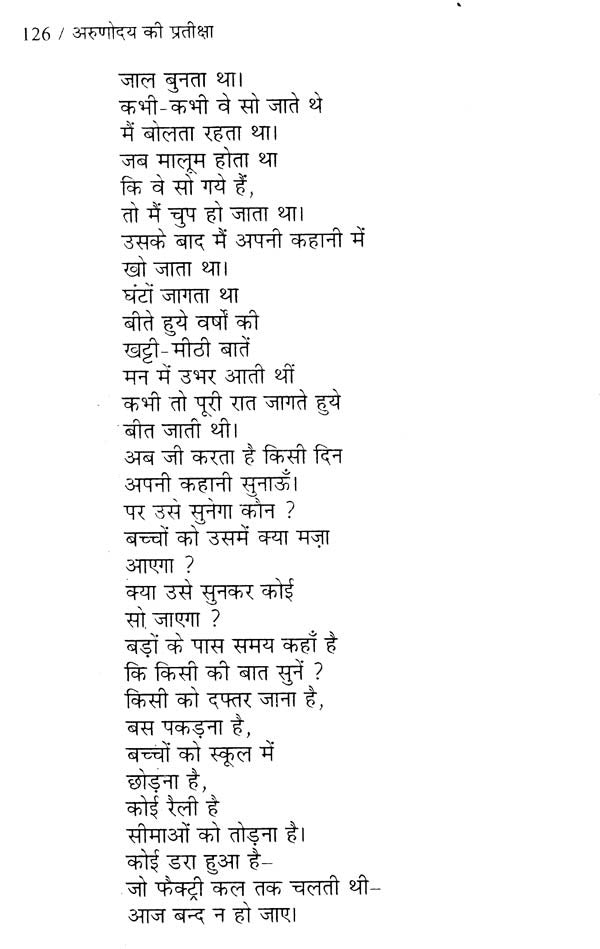 126 / अरुणोदय की प्रतीक्षा
जाल बुनता था।
कभी-कभी वे सो जाते थे
मैं बोलता रहता था।
जब मालूम होता था
कि वे सो गये हैं,
तो मैं चुप हो जाता था।
उसके बाद मैं अपनी कहानी में
खो जाता था।
घंटों जागता था
बीते हुये वर्षों की
खट्टी-मीठी बातें
मन में उभर आती थीं
कभी तो पूरी रात जागते हुये
बीत जाती थी।
अब जी करता है किसी दिन
अपनी कहानी सुनाऊँ।
पर उसे सुनेगा कौन ?
बच्चों को उसमें क्या मज़ा
आएगा ?
क्या उसे सुनकर कोई
सो जाएगा ?
बड़ों के पास समय कहाँ है
कि किसी की बात सुनें ?
किसी को दफ्तर जाना है,
बस पकड़ना है,
बच्चों को स्कूल में
छोड़ना है,
कोई रैली है
सीमाओं को तोड़ना है।
कोई डरा हुआ है–
जो फैक्ट्री कल तक चलती थी–
आज बन्द न हो जाए।